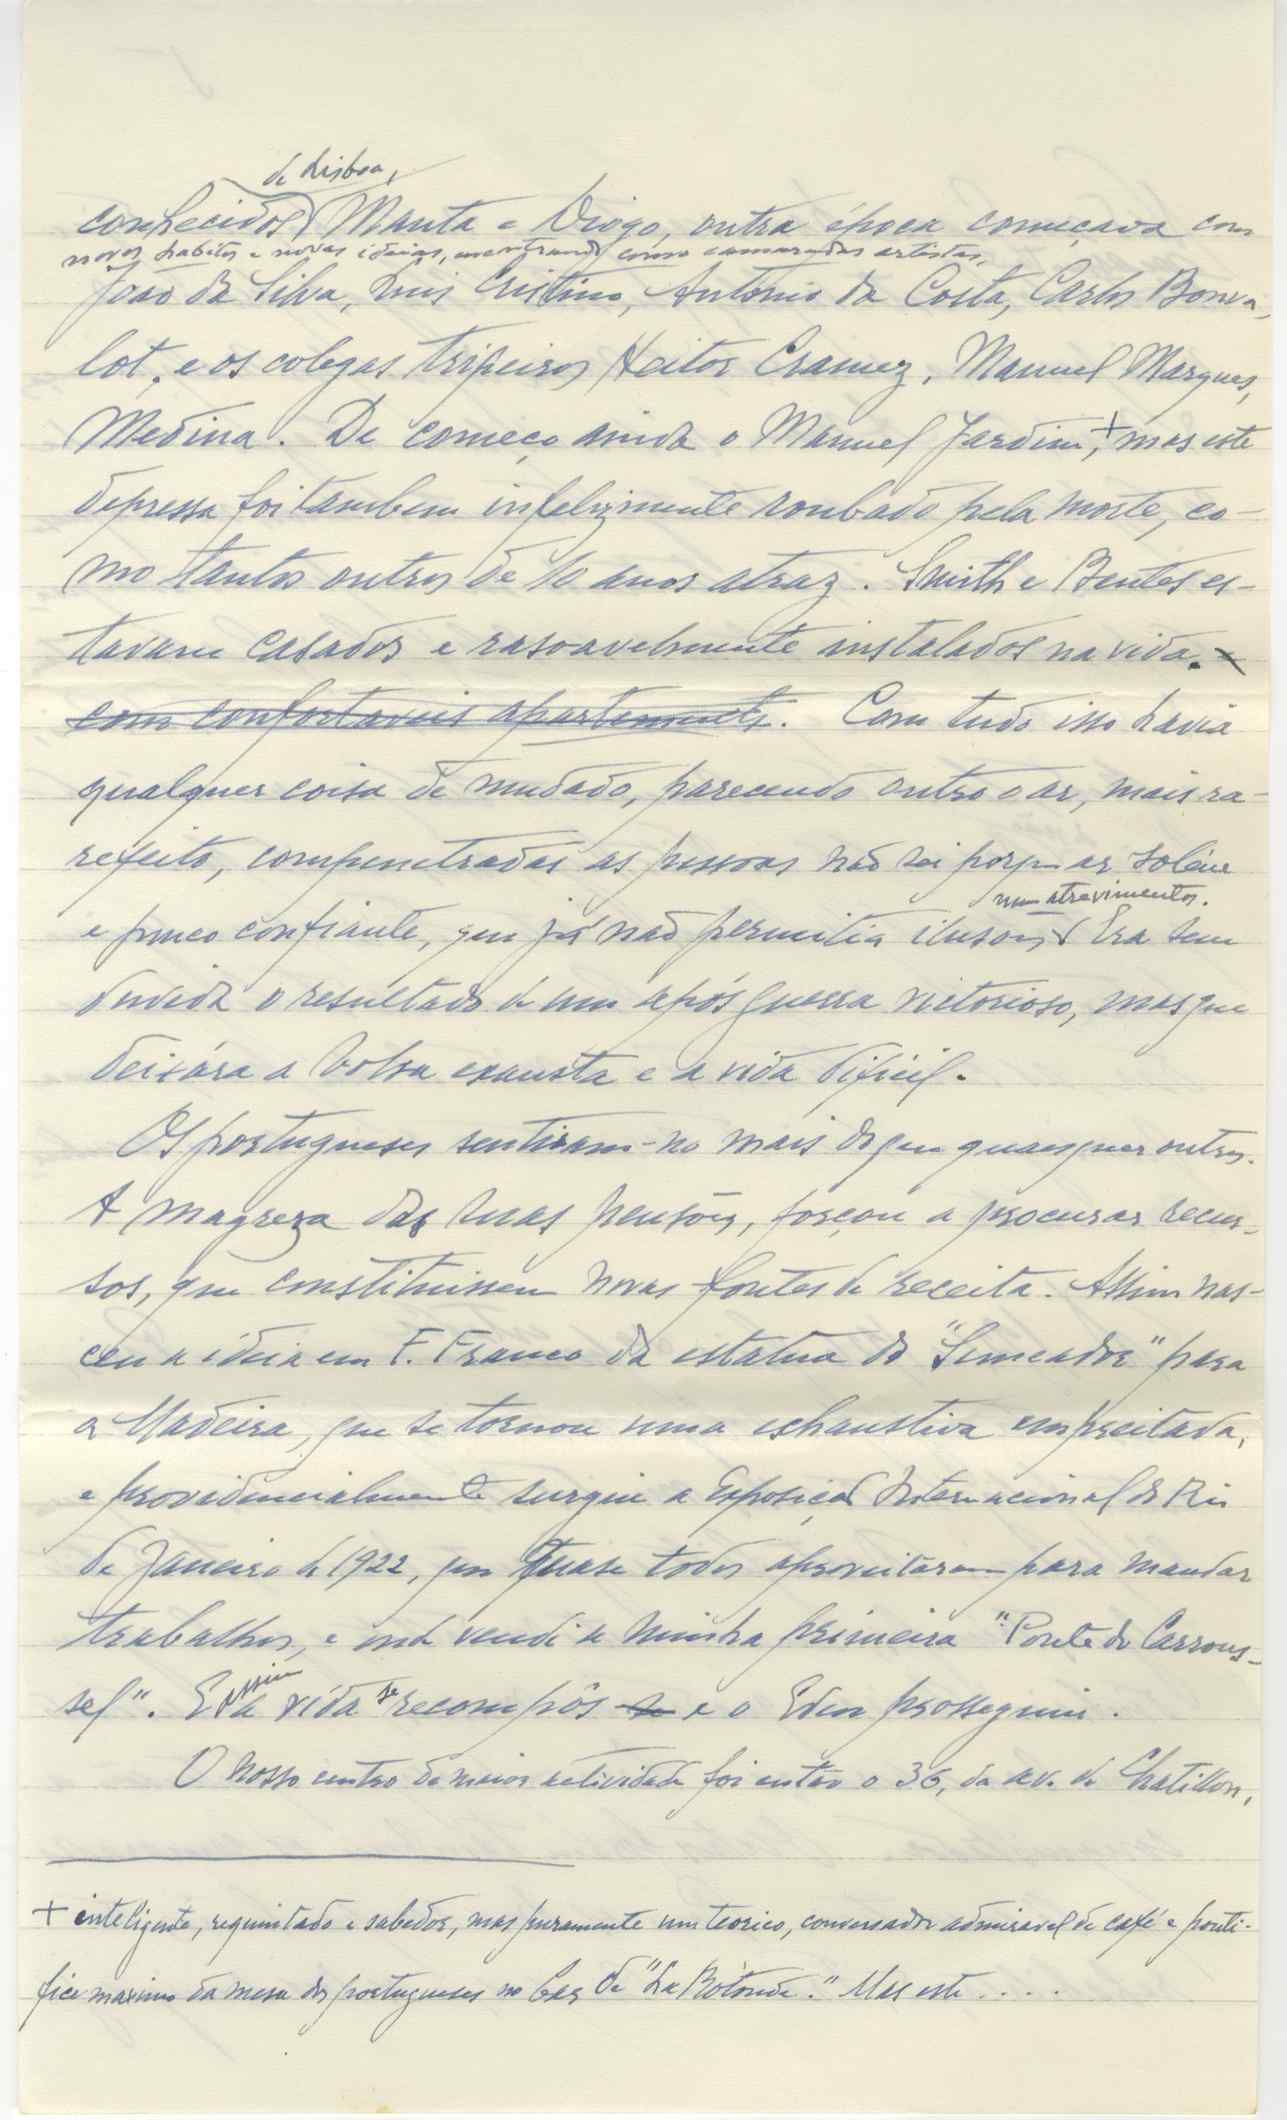 de Lisboa,
conhecidos Manta e Diogo, outra época começava com
novos habitos e novas ideias, encontrando como camaradas artistas,
João da Silva, Luis Cristino, Antonio da Costa, Carlos Bonva-
lot, e os colegas tripeiros Heitor Cramez, Manuel Marques,
Medina. De começo ainda o Manuel Jardim,+ mas este
depressa foi tambem infelizmente roubado pela morte, co-
mo tantos outros de 10 anos atraz. Smith e Bentes es-
tavam casados e rasoavelmente instalados na vida.
com confortaveis apartements. Com tudo isso havia
qualquer coisa de mudado, parecendo outro o ar, mais ra-
refeito, compenetradas as pessoas não sei porque ar solene
nem atrevimentos.
e pouco confiante, que já não permitia ilusões Era sem
duvida o resultado de um após guerra victorioso, mas que
deixára a bolsa exausta e a vida dificil.
Os portugueses sentiram-no mais do que quaesquer outros.
A magreza das suas pensões, forçou a procurar recur-
sos, que constituissem novas fontes de receita. Assim nas-
ceu a ideia em F. Franco da estatua do "Semeador" para
a Madeira, que se tornou uma exhaustiva empreitada,
e providencialmente surgiu a Exposição Internacional do Rio
de Janeiro de 1922, que quase todos aproveitaram para mandar
trabalhos, e onde vendi a minha primeira "Ponte do Carrous-
sel". E assim a vida se recompôs se e o Eden prosseguiu.
O nosso centro de maior actividade foi então o 36, da av. de Chatillon,
+ inteligente, requintado e sabedor, mas puramente um teorico, conversador admiravel de café e ponti-
fice maximo da mesa dos portugueses no bar de "La Rotonde." Mas este ....